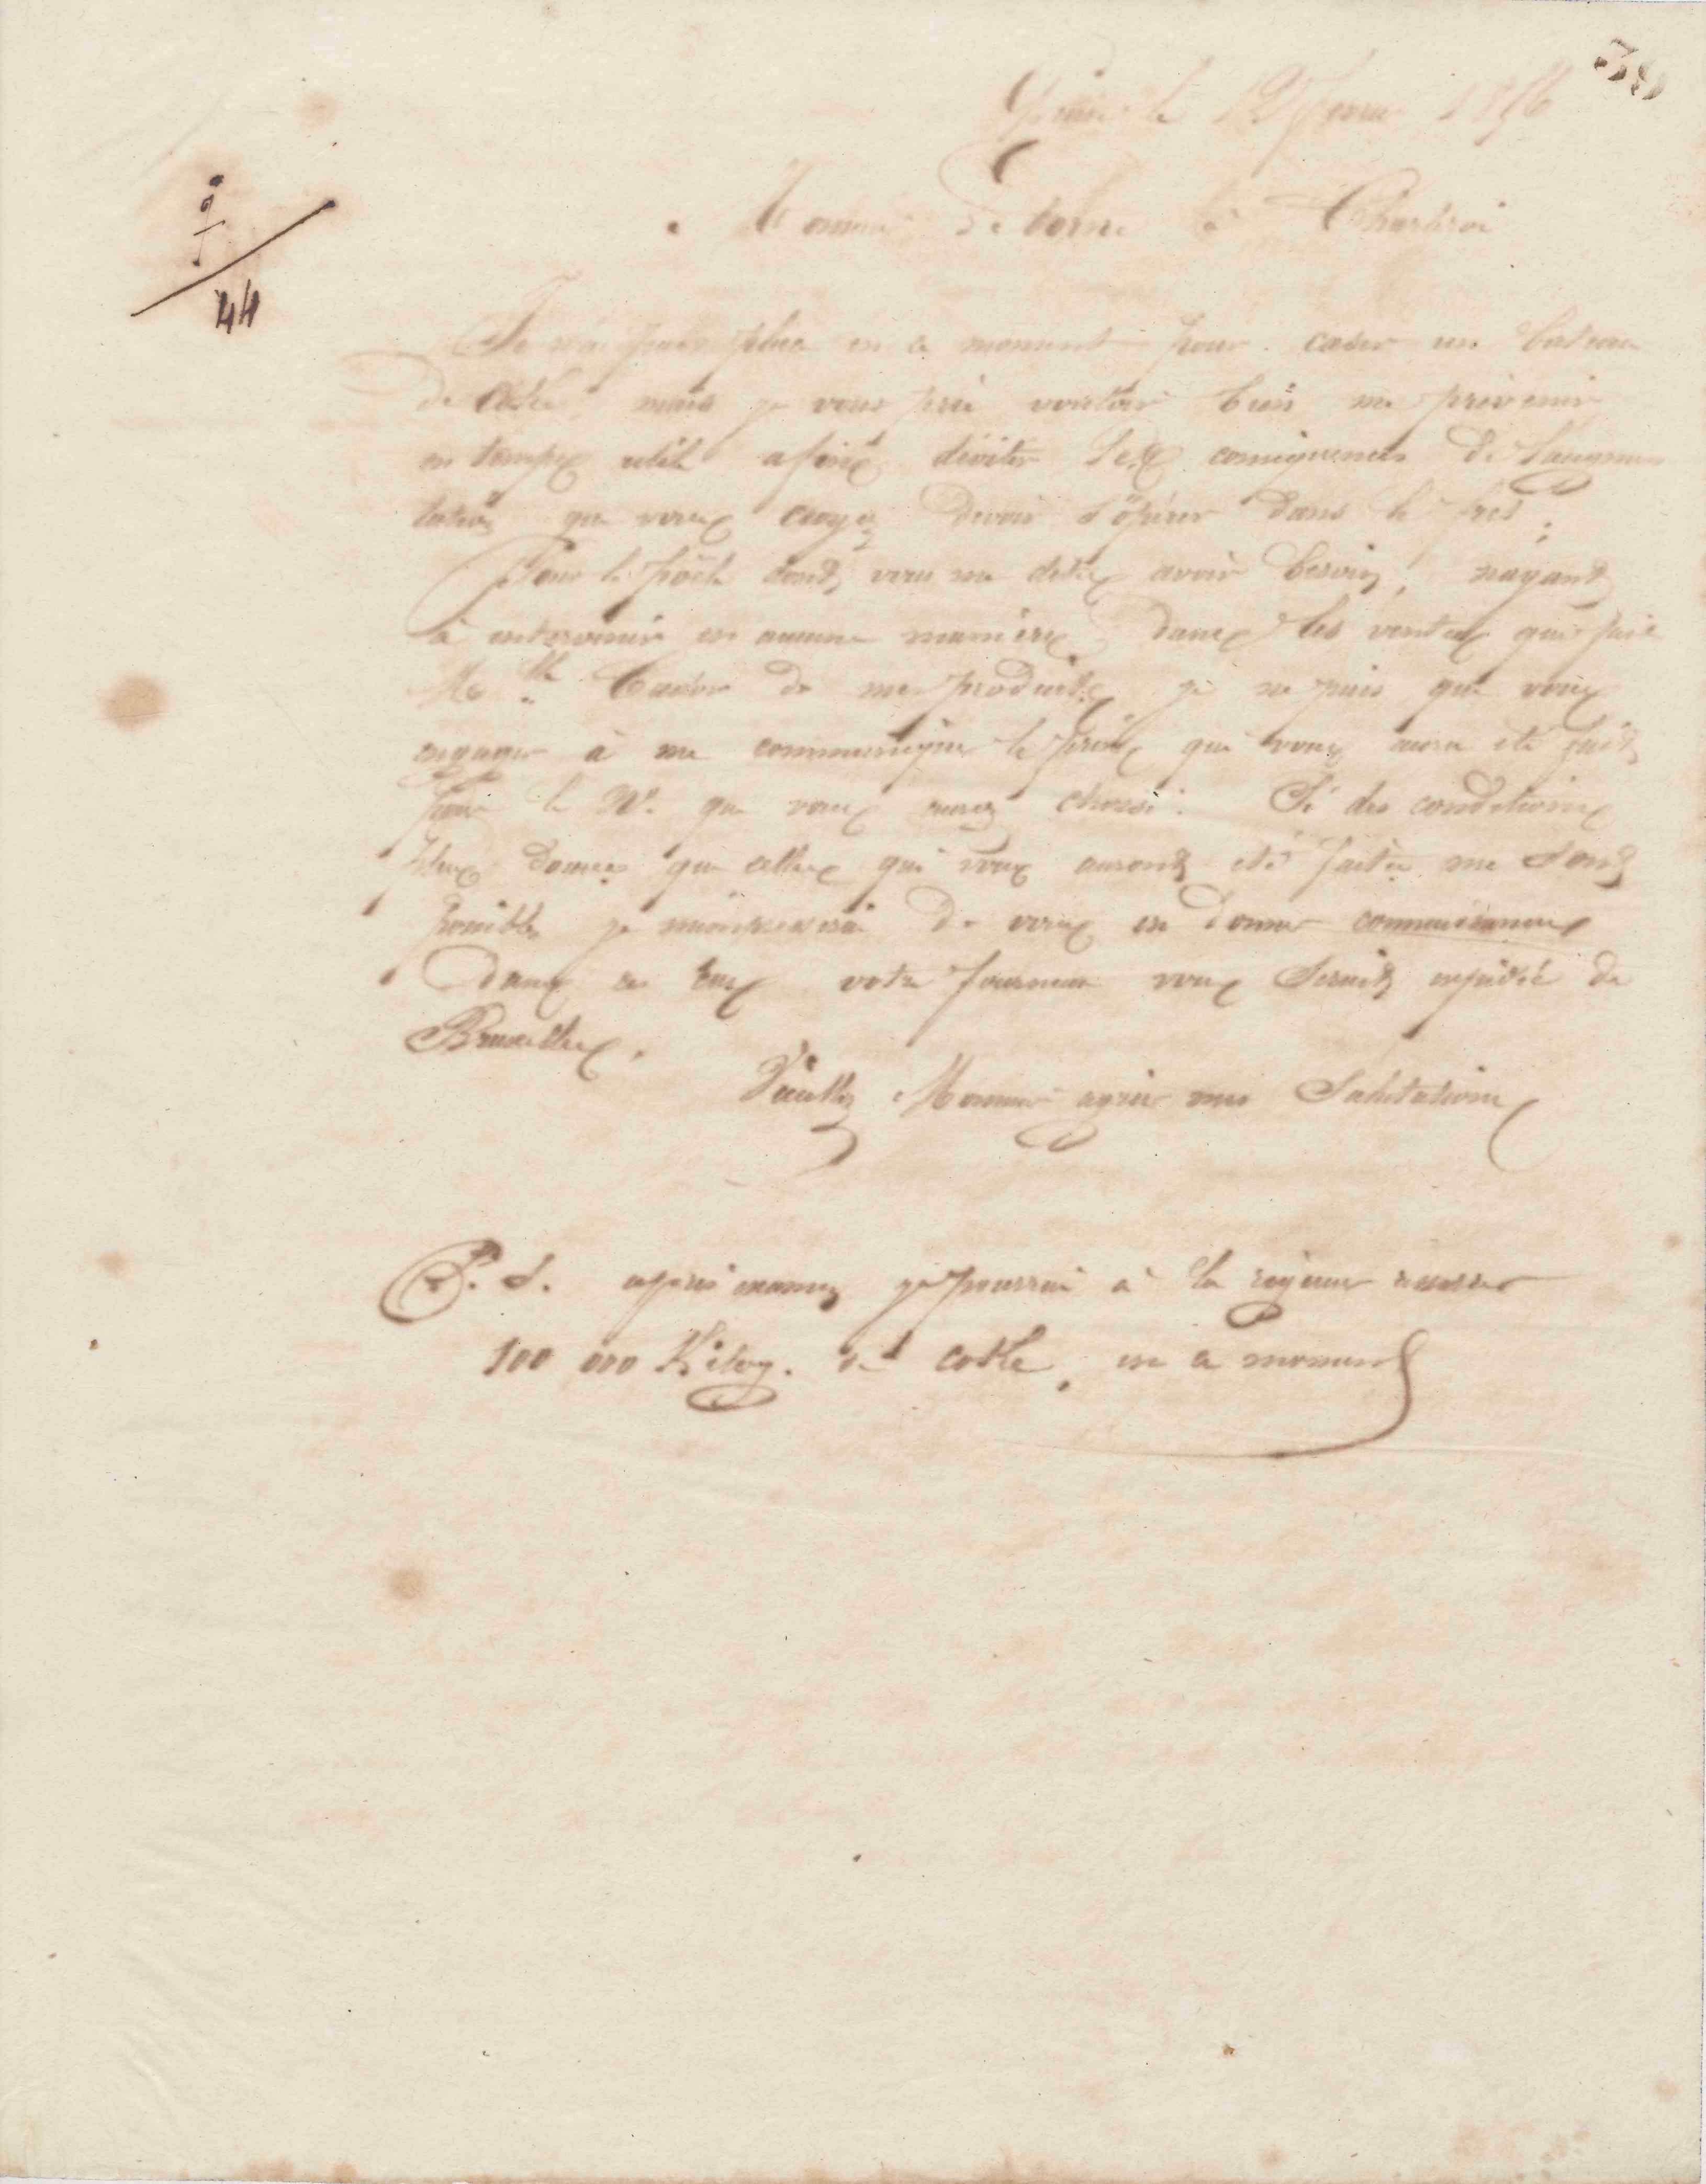 le 12 1856
44
Monsieur De à Charleroi
Je n'ai pas place en ce moment pour caser un bateau
de coke mais je vous prie vouloir bien me prévenir
en temps utile afin d'éviter les conséquences de l'augmen
tation que vous croyez devoir s'opérer dans le fret.
Pour le poêle dont vous me dites avoir besoin, n'ayant
à intervenir en aucune manière dans les ventes que fait
de mes produits je ne puis que vous
engager à me communiquer le prix qui vous aura été fait
pour le No. que vous aurez choisi. Si des conditions
plus douces que celles qui vous auront été faites me sont
possibles je de vous en donner connaissance
dans ce cas votre vous serait expédié de
Bruxelles.
Veuillez Monsieur agréer mes Salutations
P. S. après je pourrai à la rigueur
100 000 Kilog. de coke, en ce moment